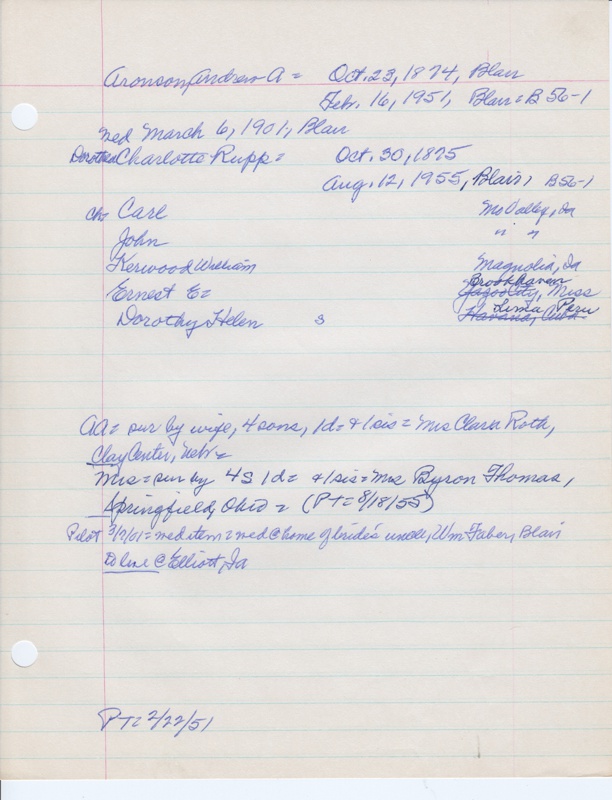 Aronson, Andrew A = Oct. 23, 1874, Blair
Febr. 16, 1951, Blair = B 56-1
Wed March 6, 1901, Blair
Dorothea Charlotte Rupp = Oct. 30, 1875
Aug. 12, 1955, Blair, B 56-1
ch Carl McValley, Ia
John " "
Kerwood William Magnolia, Ia
Brookhaven
Ernest E = Yazoo City, Miss
Lima, Peru
Dorothy Helen s Havana, Cuba
AA = sur by wife, 4 sons, 1d = & 1 sis = Mrs Clara Roth,
Clay Center, Nebr =
Mrs = sur by 4 S 1d = & 1 sis = Mrs Byron Thomas,
Springfield, Ohio = (PT = 8/18/55)
Pilot 3/7/01 = wed item = wed @ home of bride's uncle, Wm Faber, Blair
To live @ Elliott, Ia
PT = 2/22/51